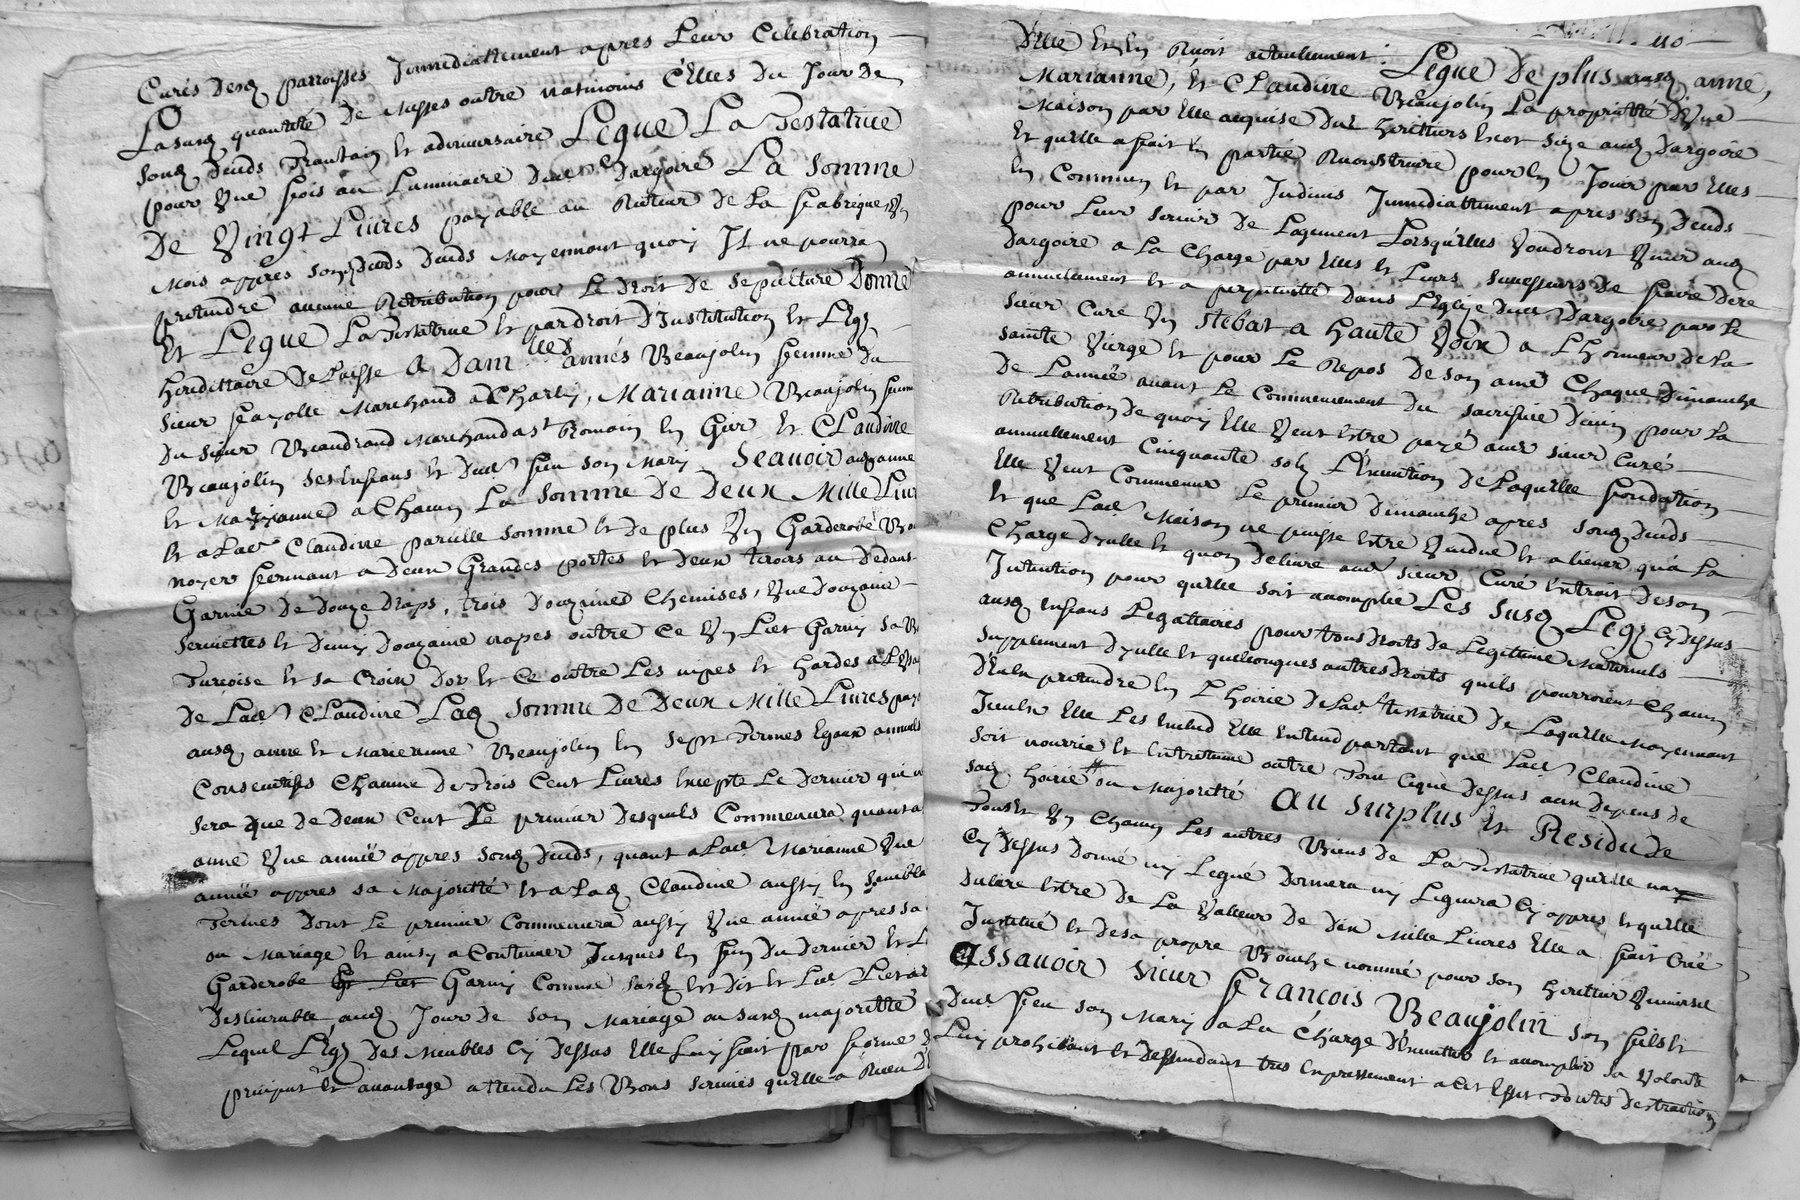 Curés desq parroisses Immediattement apres Leur Celebration
La susq quantité de Messes outre neatmoins Celles du Jour de
sonq deceds Trantain et adnniversaire Legue La Testatrice
pour Une fois au Luminaire dud Dargoire La somme
De Vingt Livres payable au Recteur de La fabrique Un
Mois appres sonq deceds Moyennant quoy Il ne pourra
pretendre aucune Retribution pour Le droit de sepulture Donne
Et Legue La Testatrice et par droit D'Institution et Legz
hereditaire Delaisse a Dam lles annés Beaujolin femme du
sieur feayolle Marchand a Charly, Marianne Beaujolin femme
du sieur Beaudrand Marchand a st Romain en Gier et Claudine
Beaujolin ses Enfans et dud feu son Mary Scavoir ausq anne
et Marianne a Chacun La somme de deux Mille Livr
et a Lad Claudine pareille somme et de plus Un Garderobe Bo
noyer fermant a deux Grandes portes et deux tiroirs au dedans
Garnie de douze draps, trois douzaines Chemises, Une douzaine
serviettes et demy douzaine napes outre ce Un Liet Garny sa B
Turcoise et sa Croix dor et ce outre Les nipes et hardes a L'Usa
de Lad Claudine Laq somme De Deux Mille Livres pay
ausq anne et Marieanne Beaujolin en sept Termes Egaux annuels
Consecutifs Chacune de Trois Cent Livres Excepté Le dernier qui n
sera que de deux Cent Le premier desquels Commencera quant a
anne Une année appres sonq deceds, quant a Lad Marianne Une
année appres sa Majoritté et a Laq Claudine aussy en semblab
Termes dont Le premier Commencera aussy Une année apres sa
ou Mariage et ainsy a Continuer Jusques en fin du dernier et L
Garderobe et Liet Garny Comme susq est dit et Lad Liet ar
deslivrable ausq Jour de son Mariage ou susq majoritté
Lequel Legz des Meubles Cy dessus Elle Luy fait par forme
preciput et avantage attendu Les Bons services qu'Elle a Receu D
D'elle et en Recoit actuellement. Legue De plus ausq anne,
Marianne, et Claudine Beaujolin La propriété d'Une
Maison par Elle acquise des heritiers size ausq Dargoire
et qu'elle a fait en partie Reconstruire pour en Jouir par Elles
en Commun et par Indivis Immediattement apres son deceds
pour Leur servir de Lagement Lorsqu'elles Voudront Venir ausq
Dargoire a La Charge par Elles et Leurs successeurs de faire dire
annuellement et a perpetuitté dans L'Eglize dud Dargoire par Le
sieur Curé Un stebat a haute Voix a L'honneur de La
sainte Vierge et pour Le Repos de son ame Chaque dimanche
de Lannée avant Le Commencement du sacrifice divin pour La
Retribution de quoy Elle Veut Estre payé aud sieur Curé
annuellement Cinquante sols L'Execution de Laquelle fondation
Elle Veut Commencer Le premier dimanche apres sonq deceds
et que Lad Maison ne puisse Estre Vendue et aliener qu'a La
Charge d'ycelle et quon delivre aud sieur Curé Extrait de son
Intention pour qu'elle soit accomplie Les susq Legz Cy dessus
ausq Enfans Legattaires pour tous droits de Legitime Maternels
supplement d'ycelle et quelconques autres droits quels pourroient Chacun
d'Eulx pretendre en L'hoirie de Lad testatrice de Laquelle Moyennant
Iceulx Elle Les Exclud Elle Entend partant que Lad Claudine
soit nourrie et Entretenue outre Tout cique dessus aux depens de
saq hoirie # ou Majoritté au surplus et Residu de
Tous et Un Chacun Les autres Biens de La Testatrice qu'elle na
Cy dessus donné ny Legué donnera ny Leguera Cy appres et qu'elle
declare Estre de La Valleur de dix Mille Livres Elle a fait Créé
Institué et de sa propre Bouche nommé pour son heritier Universel
assavoir sieur François Beaujolin son fils et
dud feu son Mary a La Charge d'Executter et accomplir sa Volonté
Luy prohibant et deffendant tres Expressement a cet Effet Toutes destraction